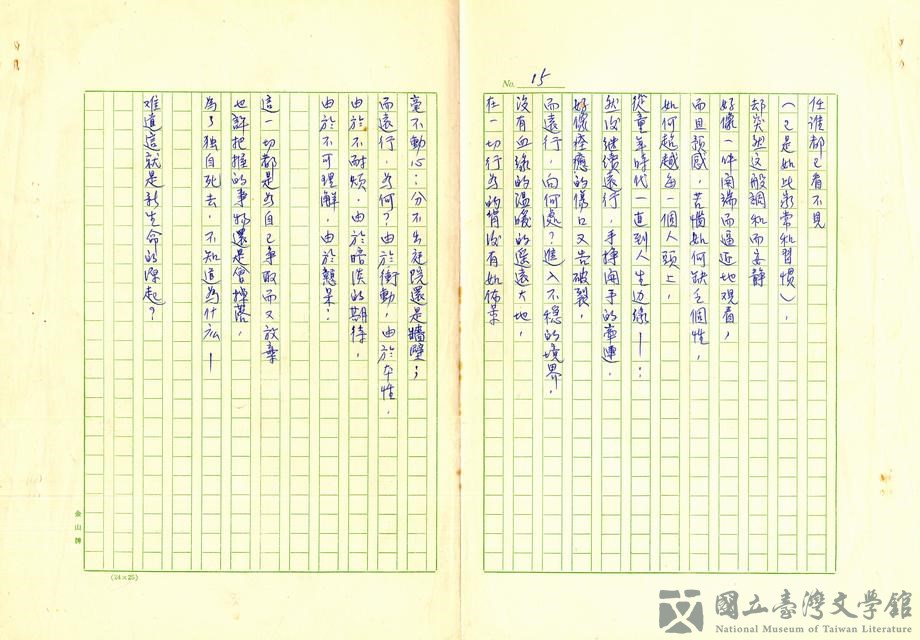 No. 15
任誰都已看不見
(已是如此家常和習慣),
却突然这般調和而安靜
好像一件開端而逼近地觀看,
而且預感,苦惱如何缺乏個性,
如何超越每一個人頭上,
從童年時代一直到人生边緣——:
然後继續遠行,手掙開手的牽連,
好像痊癒的傷口又告破裂,
而遠行,向何處?進入不穩的境界,
沒有血緣的温暖的遥遠大地,
在一切行為的背後有如佈景
毫不動心:分不出庭院還是牆壁;
而遠行,為何?由於衝動,由於本性,
由於不耐煩,由於暗淡的期待,
由於不可理解,由於愚呆:
這一切都是為自己争取而又放棄
也許把握的事物還是會掉落,
為了独自死去,不知道為什么——
难道這就是新生命的源起?
金山牌
(24×25)
國立臺灣文學館
National Museum of Taiwan Literature